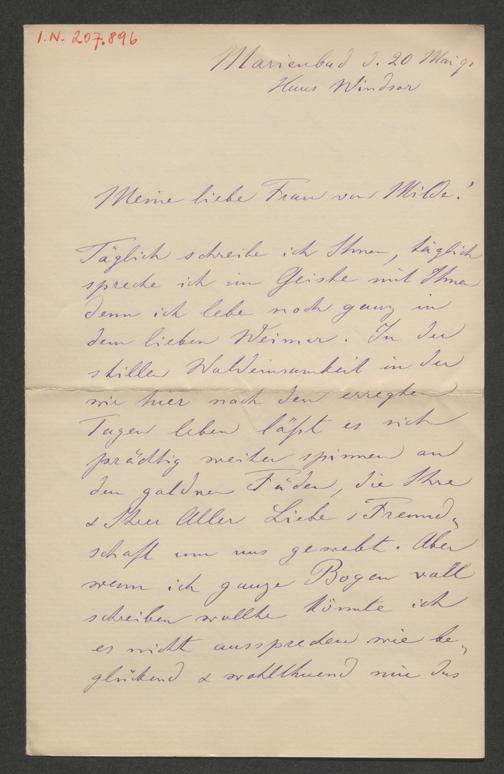 I.N. 207.896
Marienbad d. 20 Mai 91
Haus Windsor
Meine liebe Frau von Milde!
Täglich schreibe ich Ihnen, täglich
spreche ich im Geiste mit Ihnen
denn ich lebe noch ganz in
dem lieben Weimar. In der
stillen Waldeinsamkeit in der
wir hier nach den erregten
Tagen leben läßt es sich
prächtig weiter spinnen an
den goldnen Fäden, die Ihre
& Ihrer Aller Liebe & Freund„
schaft um uns gewebt. Aber
wenn ich ganze Bogen voll
schreiben wollte könnte ich
es nicht aussprechen wie be„
glückend & wohlthuend mir das